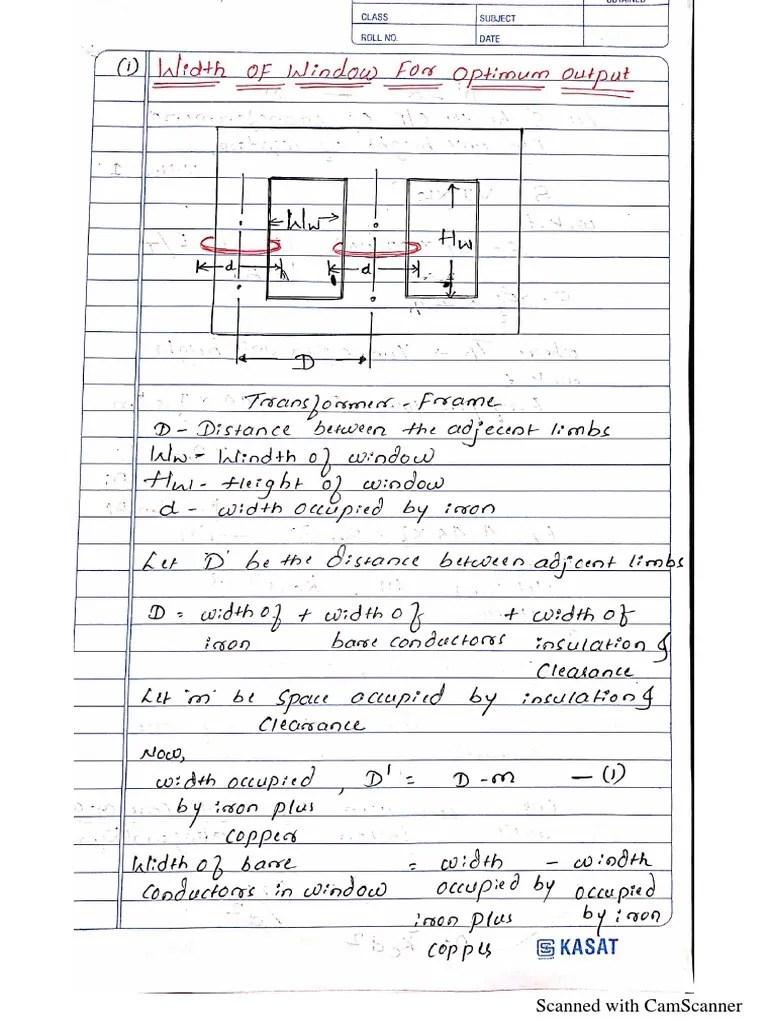 OBTAINED
CLASS
SUBJECT
ROLL NO.
DATE
(1) Width OF Window For Optimum Output
Ww
Hw
d
d
D
Transformer - Frame
D - Distance between the adjecent limbs
Ww - Windth of window
Hw - Height of window
d - width occupied by iron
Let 'D' be the distance between adjcent limbs
D = width of + width of + width of
iron bare conductors insulation &
Clearance
Let 'm' be space occupied by insulation &
Clearance
Now,
width occupied , D' = D - m — (1)
by iron plus
copper
Width of bare = width - windth
conductors in window occupied by occupied
iron plus by iron
copper
KASAT
Scanned with CamScanner